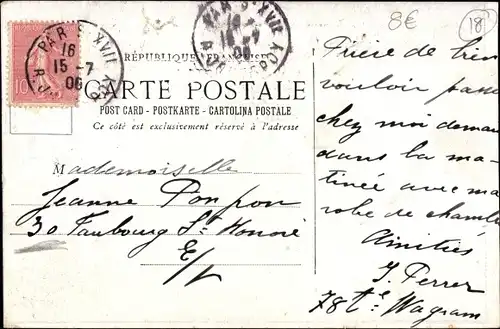 8€
18
PARIS XVII
16
15-7
06
10
RÉPUBLIQUE FRANÇAISE
CARTE POSTALE
POST CARD - POSTKARTE - CARTOLINA POSTALE
Ce côté est exclusivement réservé à l'adresse
Mademoiselle
Jeanne Ponpon
30 Faubourg St Honoré
E/V
Prière de bien
vouloir passer
chez moi demain
dans la ma-
tinée avec ma
robe de chambre
Amitiés
J. Ferrer
78 Wagram